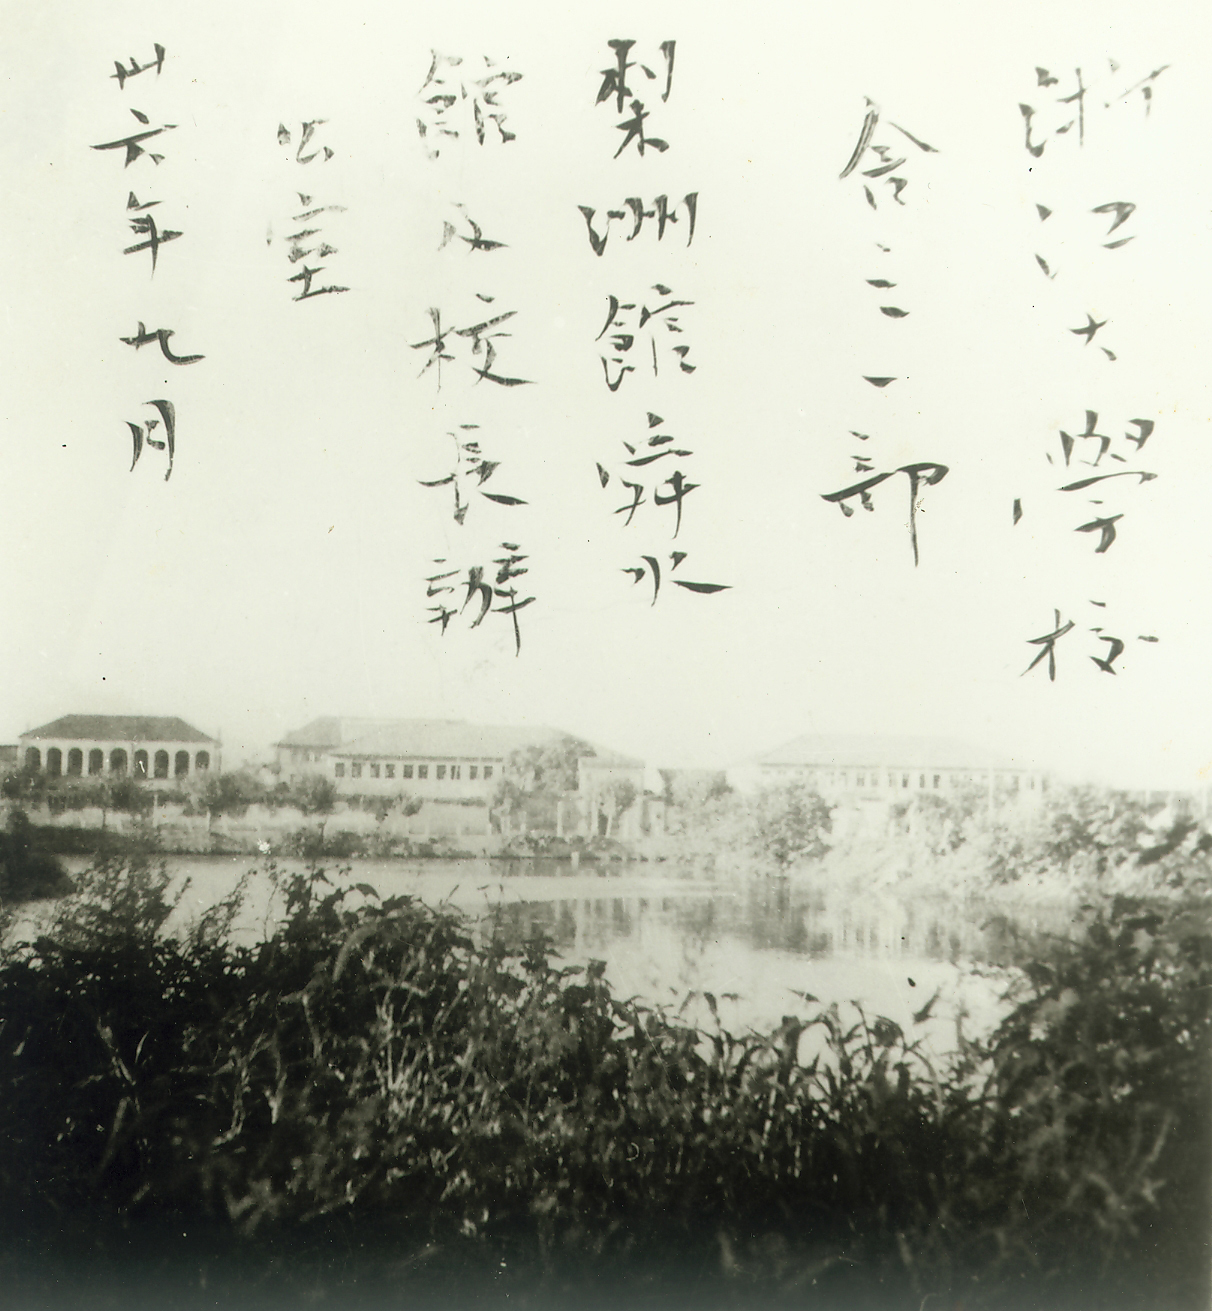 浙江大學校
舍之一部
梨洲館舜水
館及校長辦
公室
卅六年九月